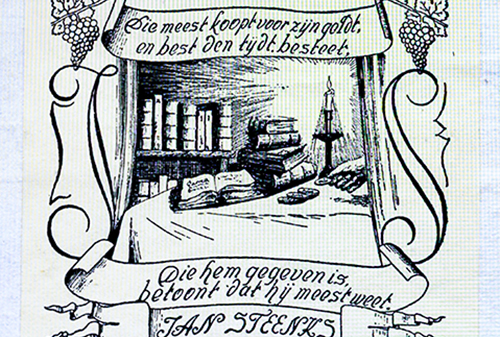 Die meest koopt voor zijn goldt,
en best den tydt besteet,
Die hem gegeven is,
betoont dat hij meest weet.
JAN STEENKS